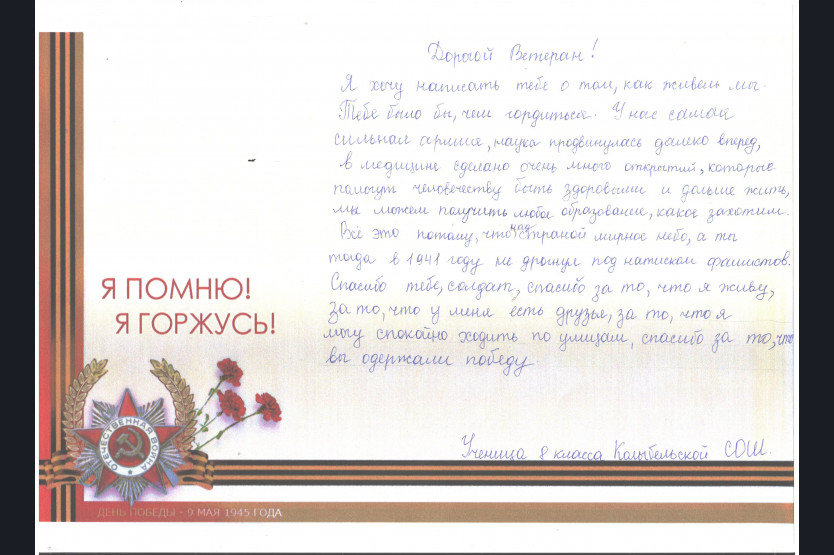 Дорогой Ветеран!
Я хочу написать тебе о том, как живем мы.
Тебе было бы, чем гордиться. У нас самая
сильная армия, наука продвинулась далеко вперед,
в медицине сделано очень много открытий, которые
помогут человечеству быть здоровыми и дольше жить,
мы можем получить любое образование, какое захотим.
Всё это потому, что над страной мирное небо, а ты
тогда в 1941 году не дрогнул под натиском фашистов.
Спасибо тебе, солдат, спасибо за то, что я живу,
за то, что у меня есть друзья, за то, что я
могу спокойно ходить по улицам, спасибо за то, что
вы одержали победу.
Я ПОМНЮ!
Я ГОРЖУСЬ!
Ученица 8 класса Колыбельской СОШ.
ОТЕЧЕСТВЕННАЯ ВОЙНА
ДЕНЬ ПОБЕДЫ - 9 МАЯ 1945 ГОДА